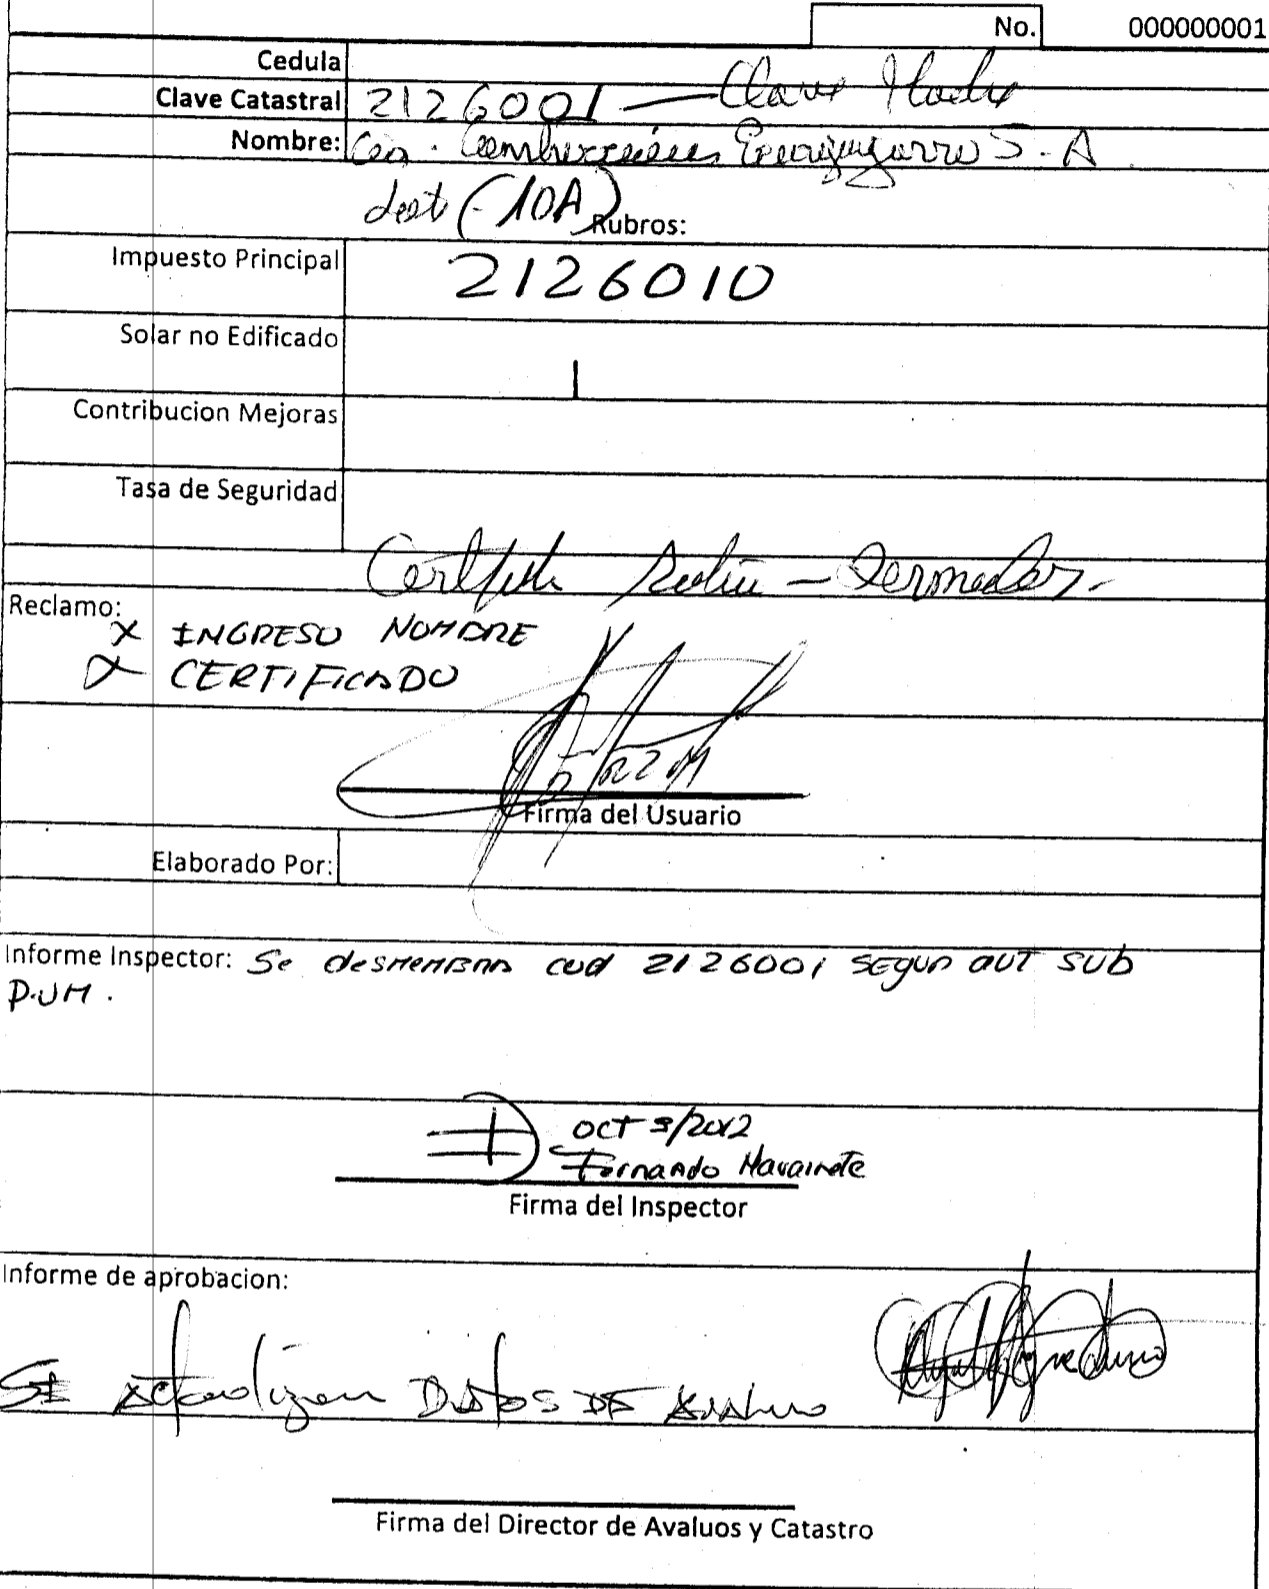 No. 000000001
Cedula
Clave Catastral 2126001 — Clave Madre
Nombre: S.A
(-10A)
Rubros:
Impuesto Principal 2126010
Solar no Edificado
Contribucion Mejoras
Tasa de Seguridad
Reclamo:
x INGRESO NOMBRE
x CERTIFICADO
Firma del Usuario
Elaborado Por:
Informe Inspector: Se desmembra cod 2126001 segun aut sub
P.U.M.
OCT 3/2012
Fernando Navarrete
Firma del Inspector
Informe de aprobacion:
SE Actualizan DATOS DE Avaluo
Firma del Director de Avaluos y Catastro